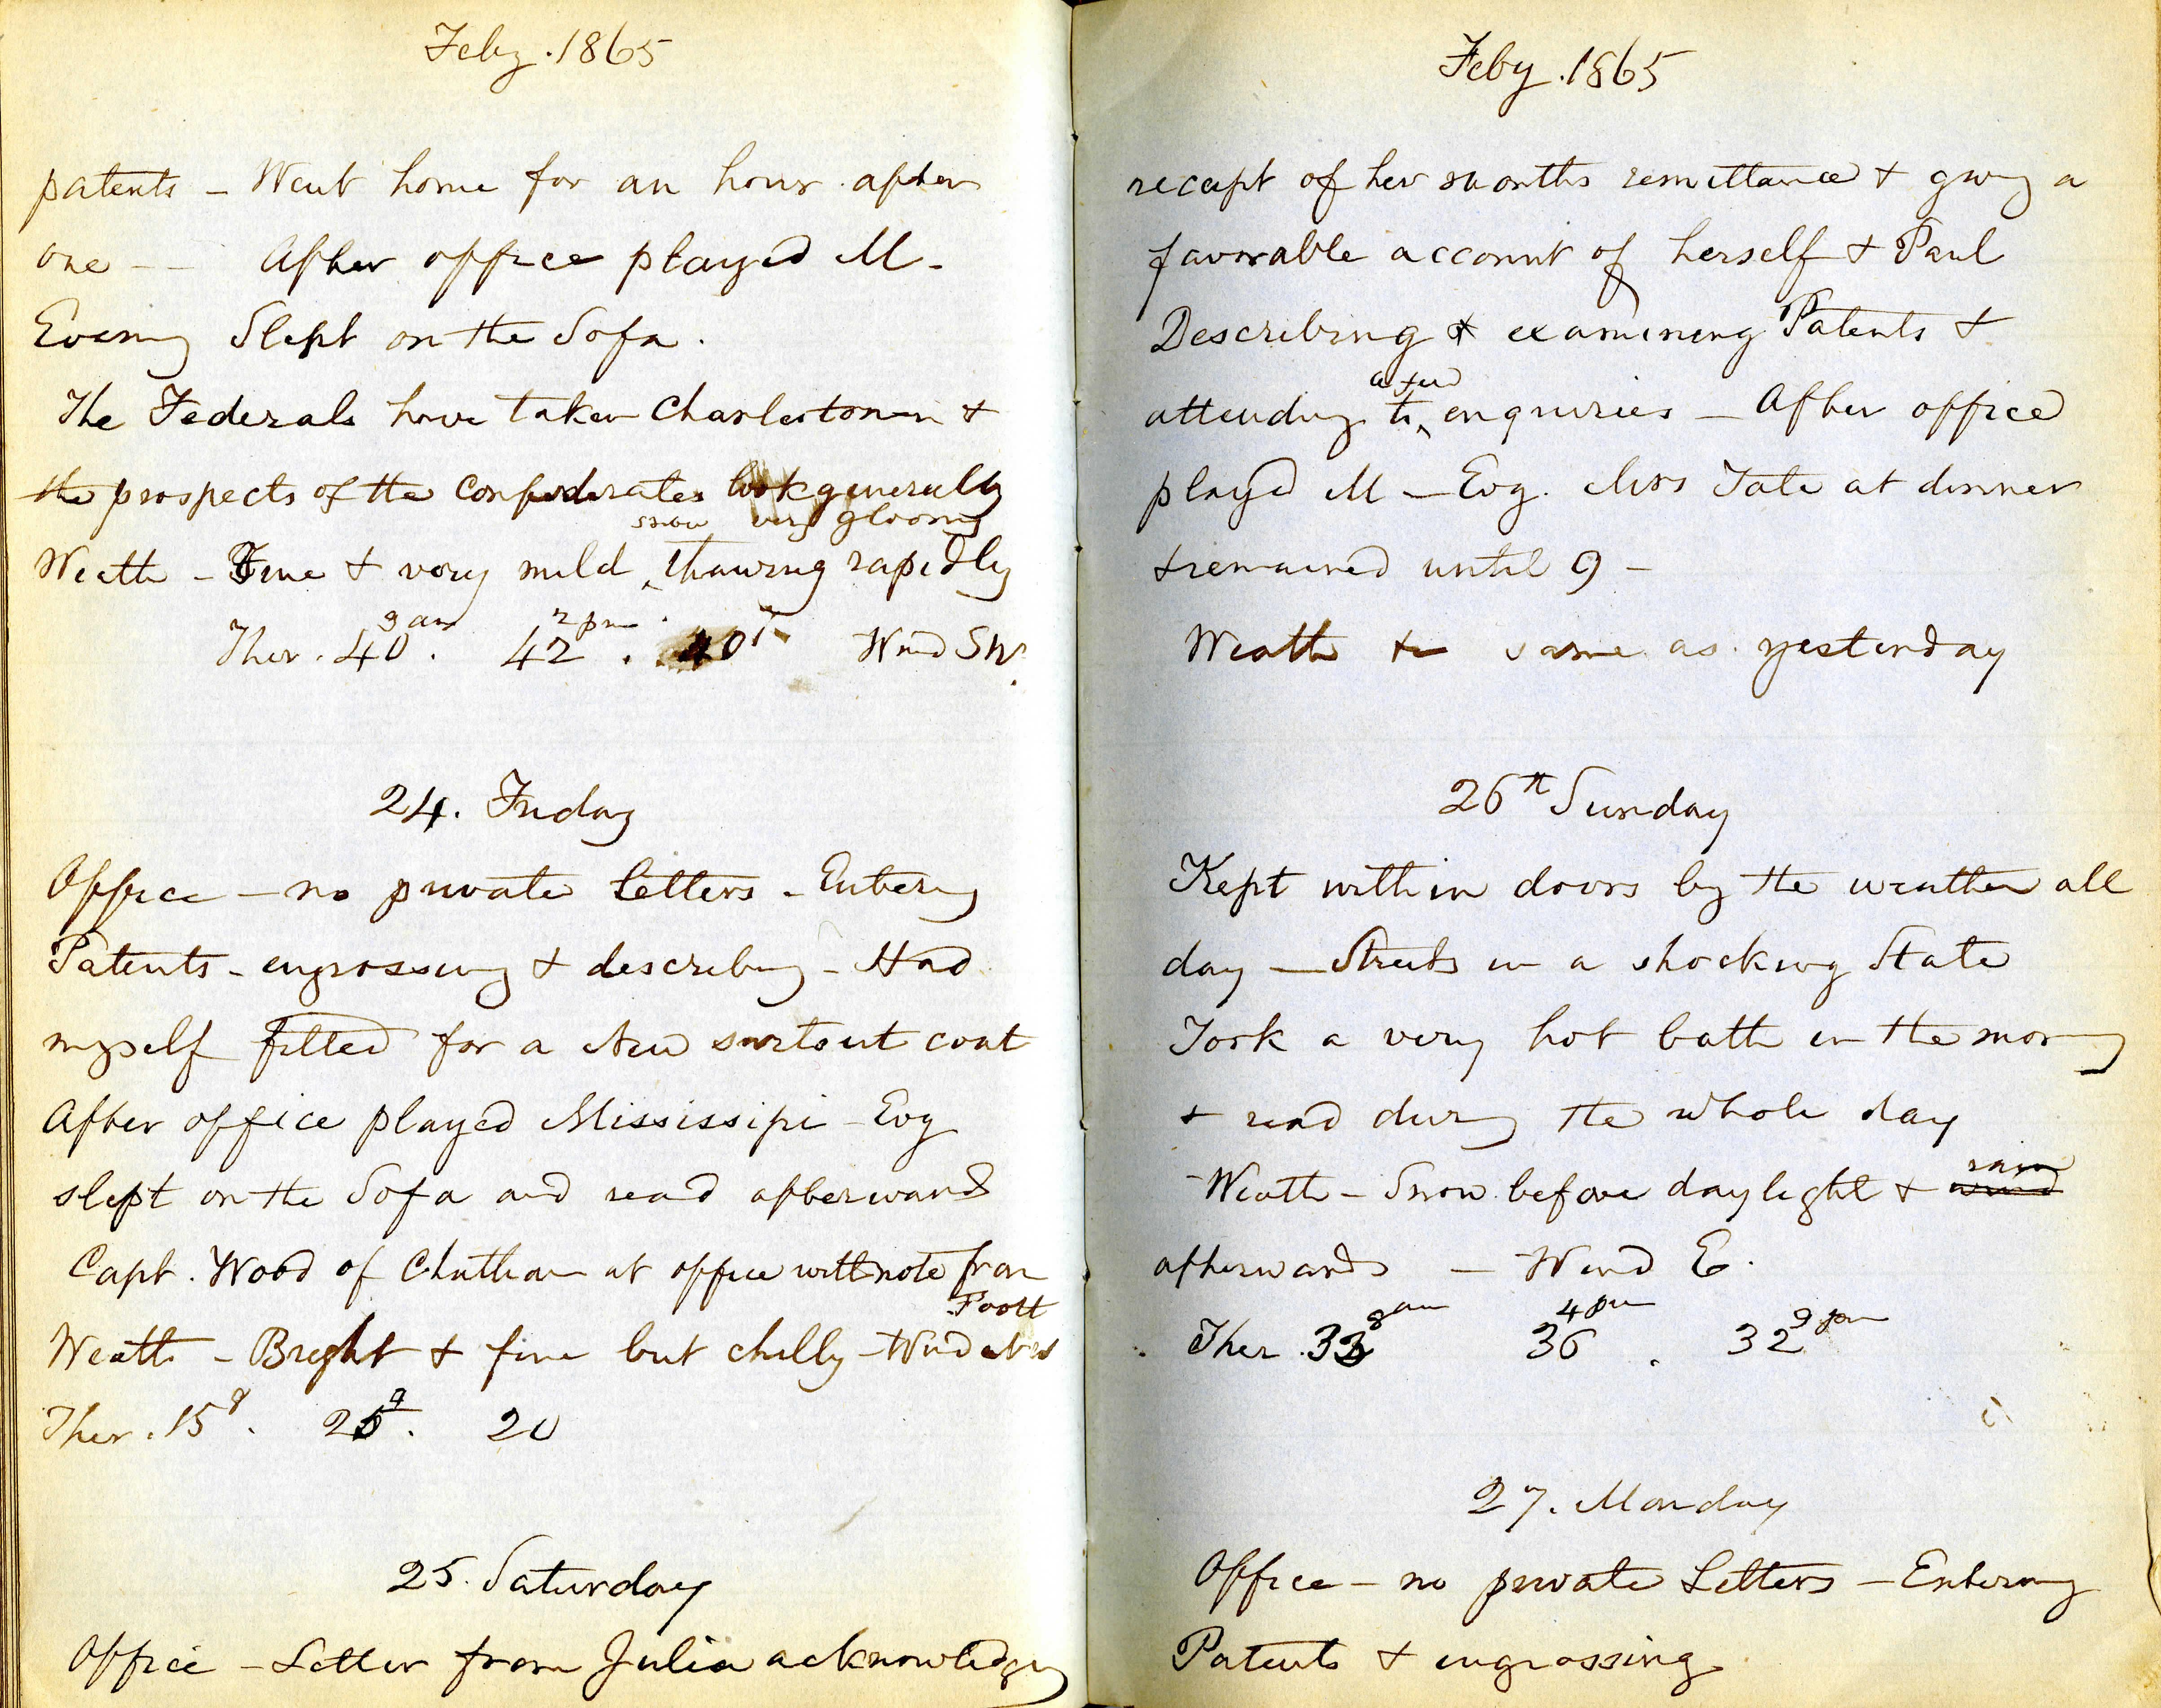 Feby. 1865
patents - Went home for an hour after
one - - After office played M -
Eveng Slept on the Sofa.
The Federals have taken Charlestown &
the prospects of the Confederates look generally
very gloomy
snow
Weath - Fine & very mild ‸ thawing rapidly
9 am 2 pm
Ther. 40. 42. 40 Wind SW.
24. Friday
Office - no private letters - Entering
Patents - engrossing & describing - Had
myself fitted for a New surtout coat
After office played Mississipi - Evg
slept on the Sofa and read afterwards
Capt. Wood of Chatham at office with note from
Foott
Weath - Bright & fine but chilly - Wind
Ther. 15 8. 25 9. 20
25. Saturday
Office - Letter from Julia acknowledging
Feby. 1865
receipt of her months remittance & givng a
favorable account of herself & Paul
Describing & examining Patents &
a few
attending to ‸ enquiries - After office
played M - Evg. Miss Tate at dinner
& remained until 9 -
Weath &c same as yesterday
26th Sunday
Kept within doors by the weather all
day - Streets in a shocking State
Took a very hot bath in the morng
& read during the whole day
rain
Weath - Snow before daylight & wind
afterwards - Wind E.
8 am 4 pm 9 pm
Ther. 33 36. 32
27. Monday
Office - no private Letters - Entering
Patents & engrossing